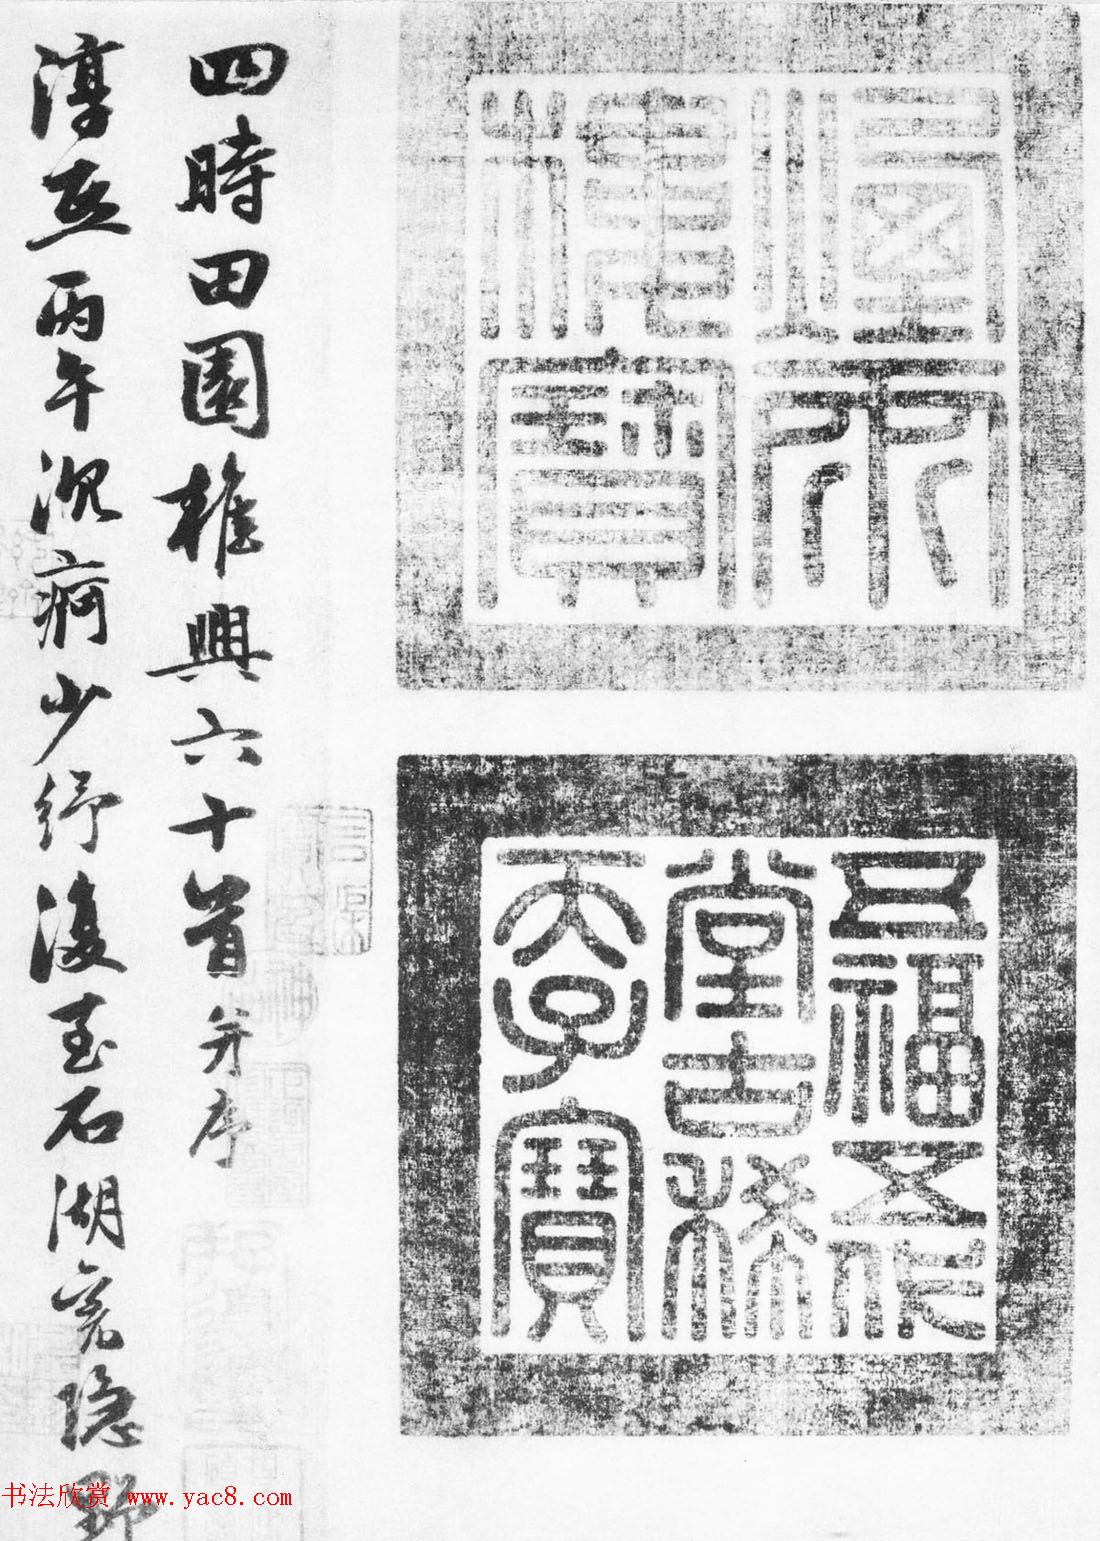 五福五代
堂古稀
天子寶
四時田園雜興六十首并序
淳熙丙午沉疴少紓復至石湖舊隱野
书法欣赏 www.yac8.com